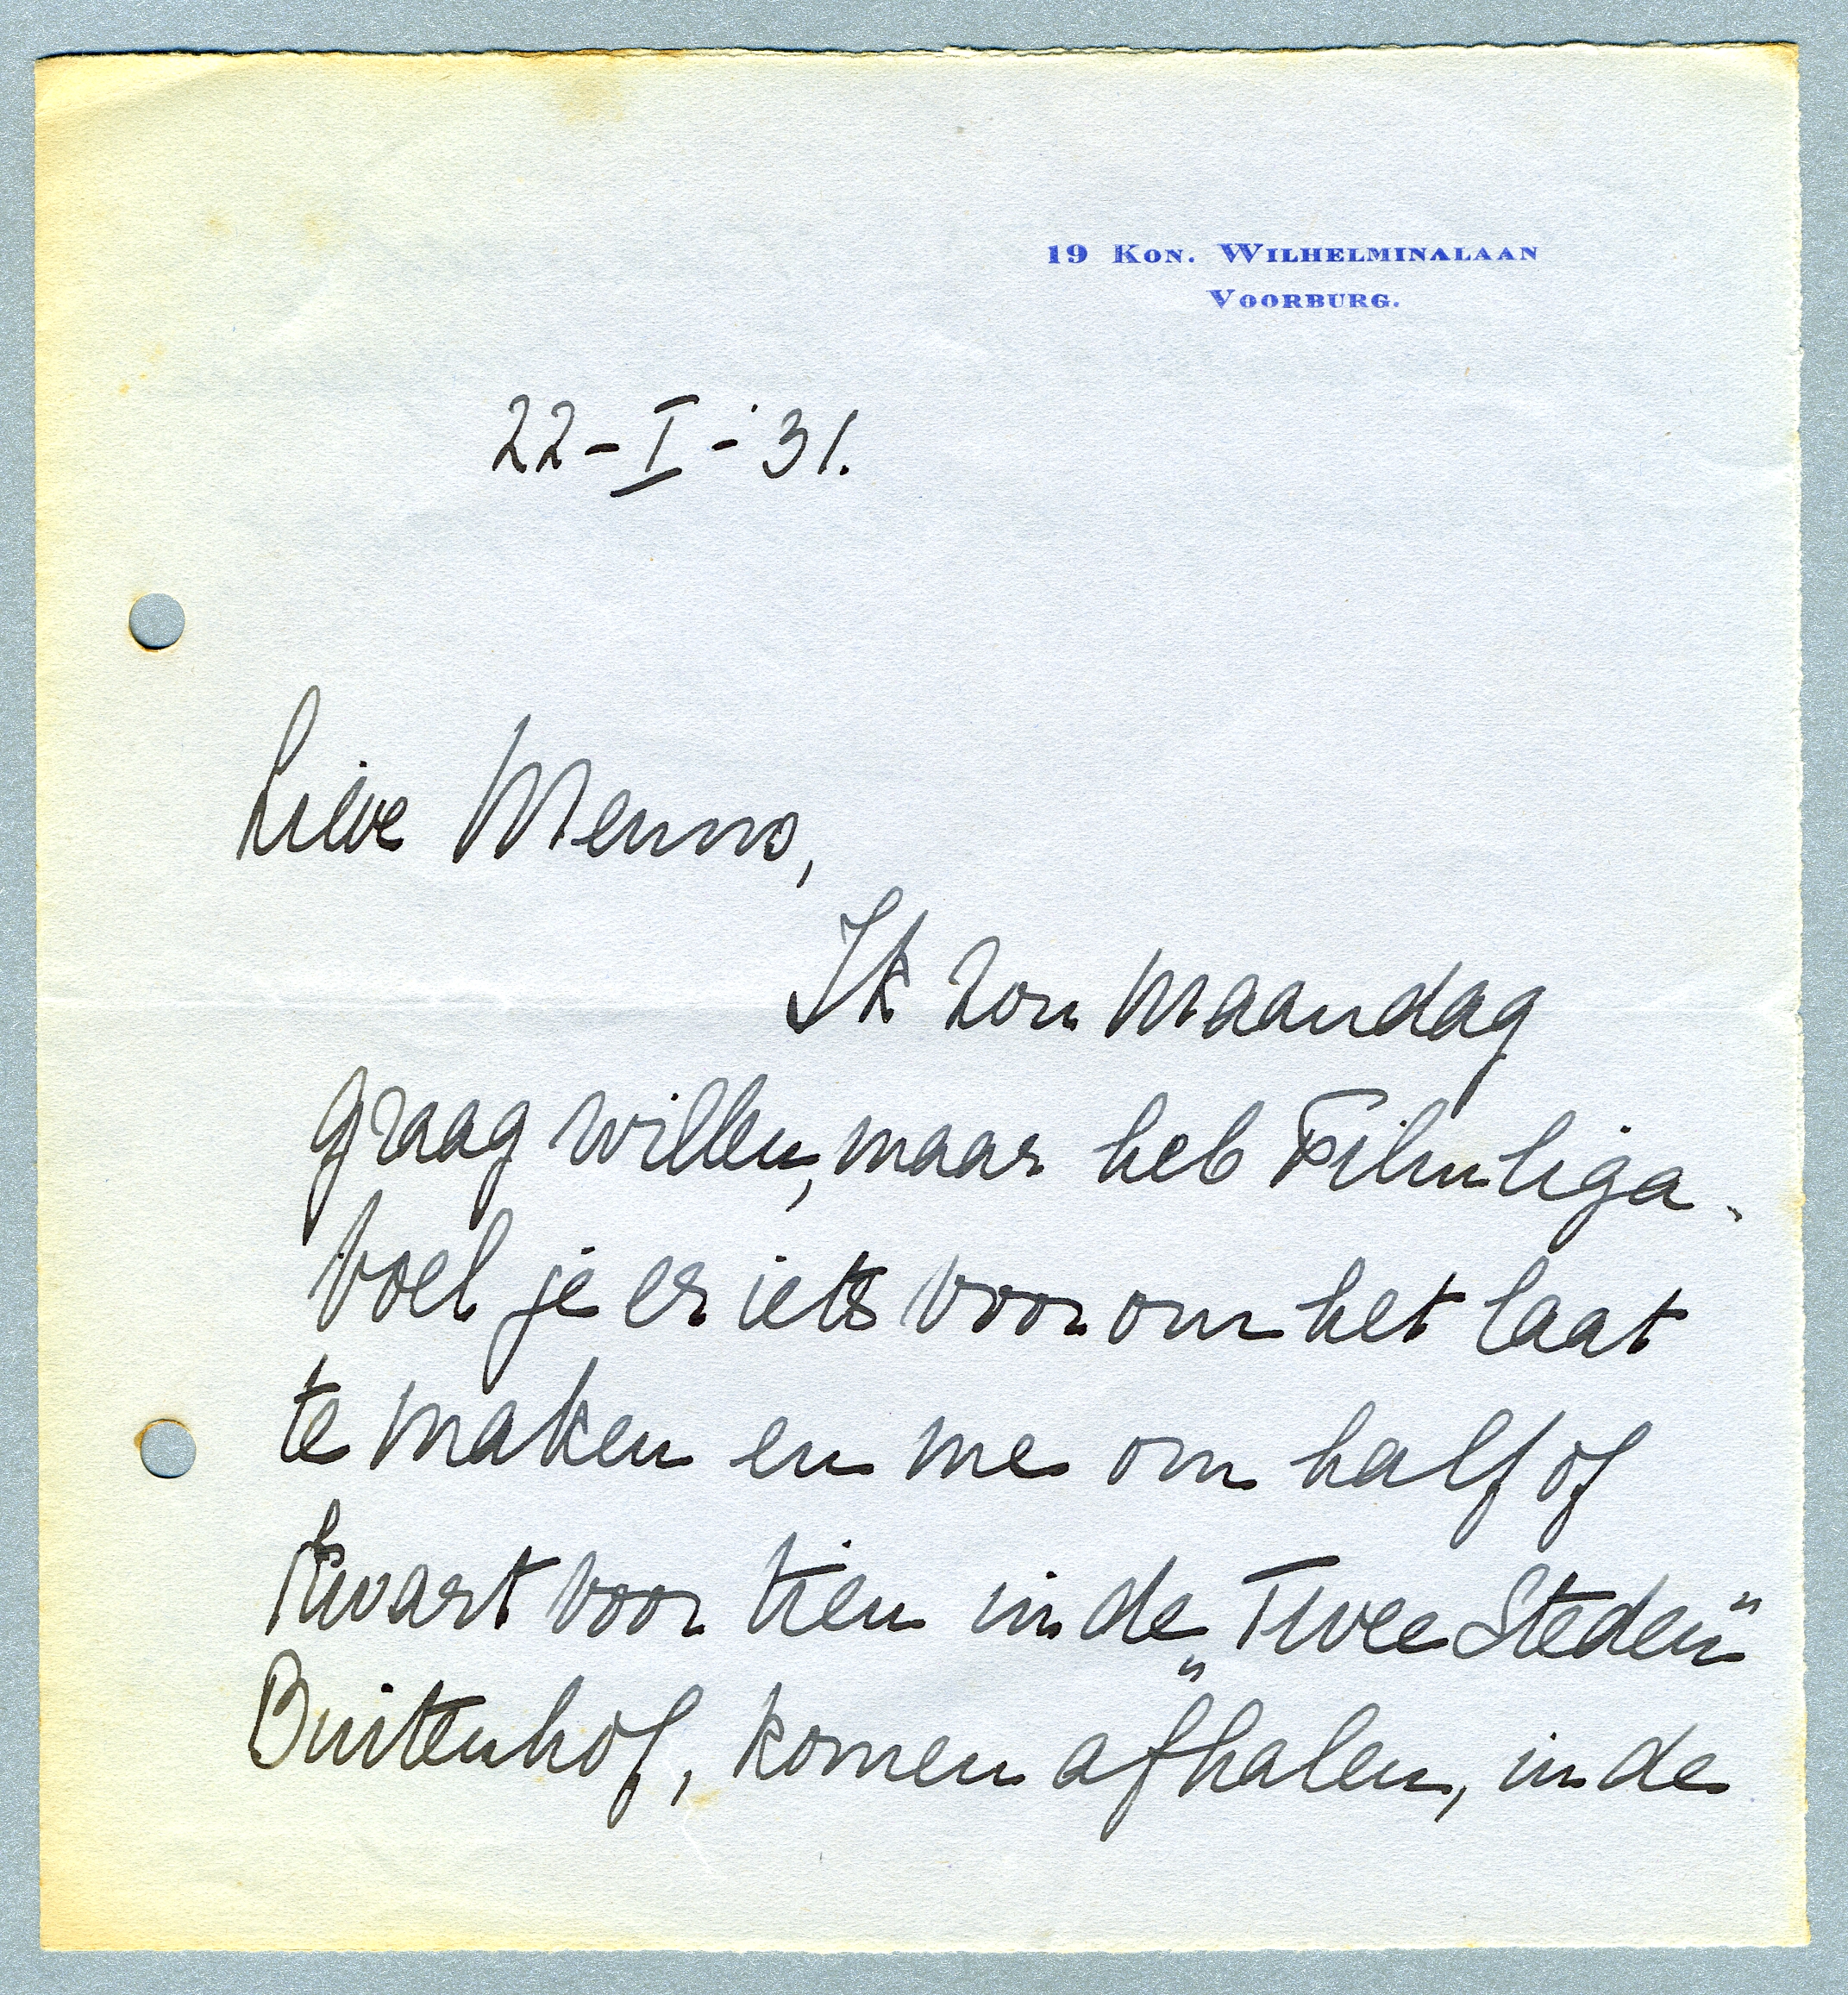 19 Kon. Wilhelminalaan
Voorburg.
22-I-'31.
Lieve Menno,
Ik zou Maandag
graag willen, maar heb Filmliga.
Voel je er iets voor om het laat
te maken en me om half of
kwart voor tien in de „Twee Steden"
Buitenhof, komen afhalen, in de